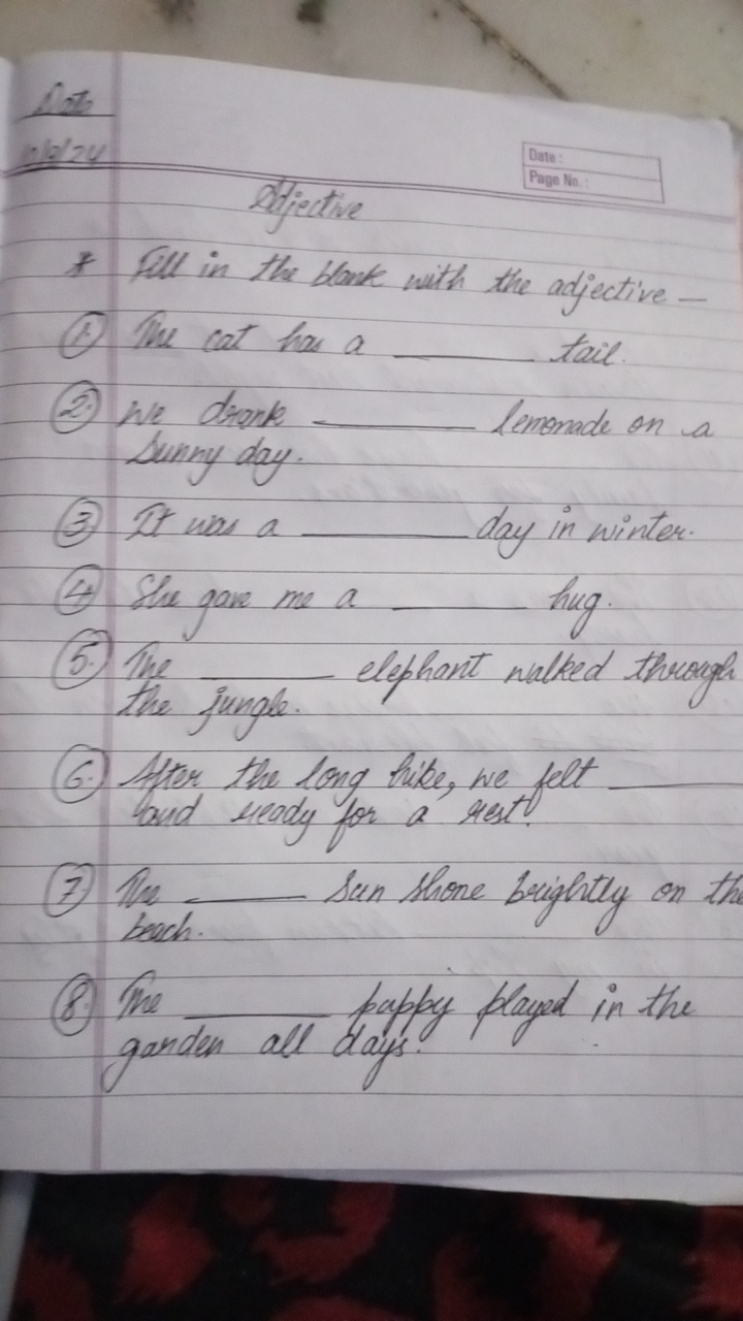 Date
Date :
Page No. :
Adjective
* Fill in the blank with the adjective —
1. The cat has a ______ tail.
2. We drank ______ lemonade on a
sunny day.
3. It was a ______ day in winter.
4. She gave me a ______ hug.
5. The ______ elephant walked through
the jungle.
6. After the long hike, we felt ______
and ready for a rest.
7. The ______ sun shone brightly on the
beach.
8. The ______ puppy played in the
garden all days.